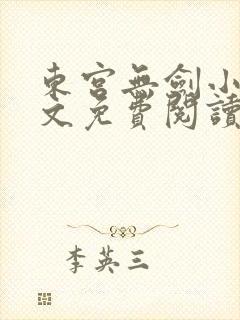 東宮無劍小
文免費閱讀
李英三